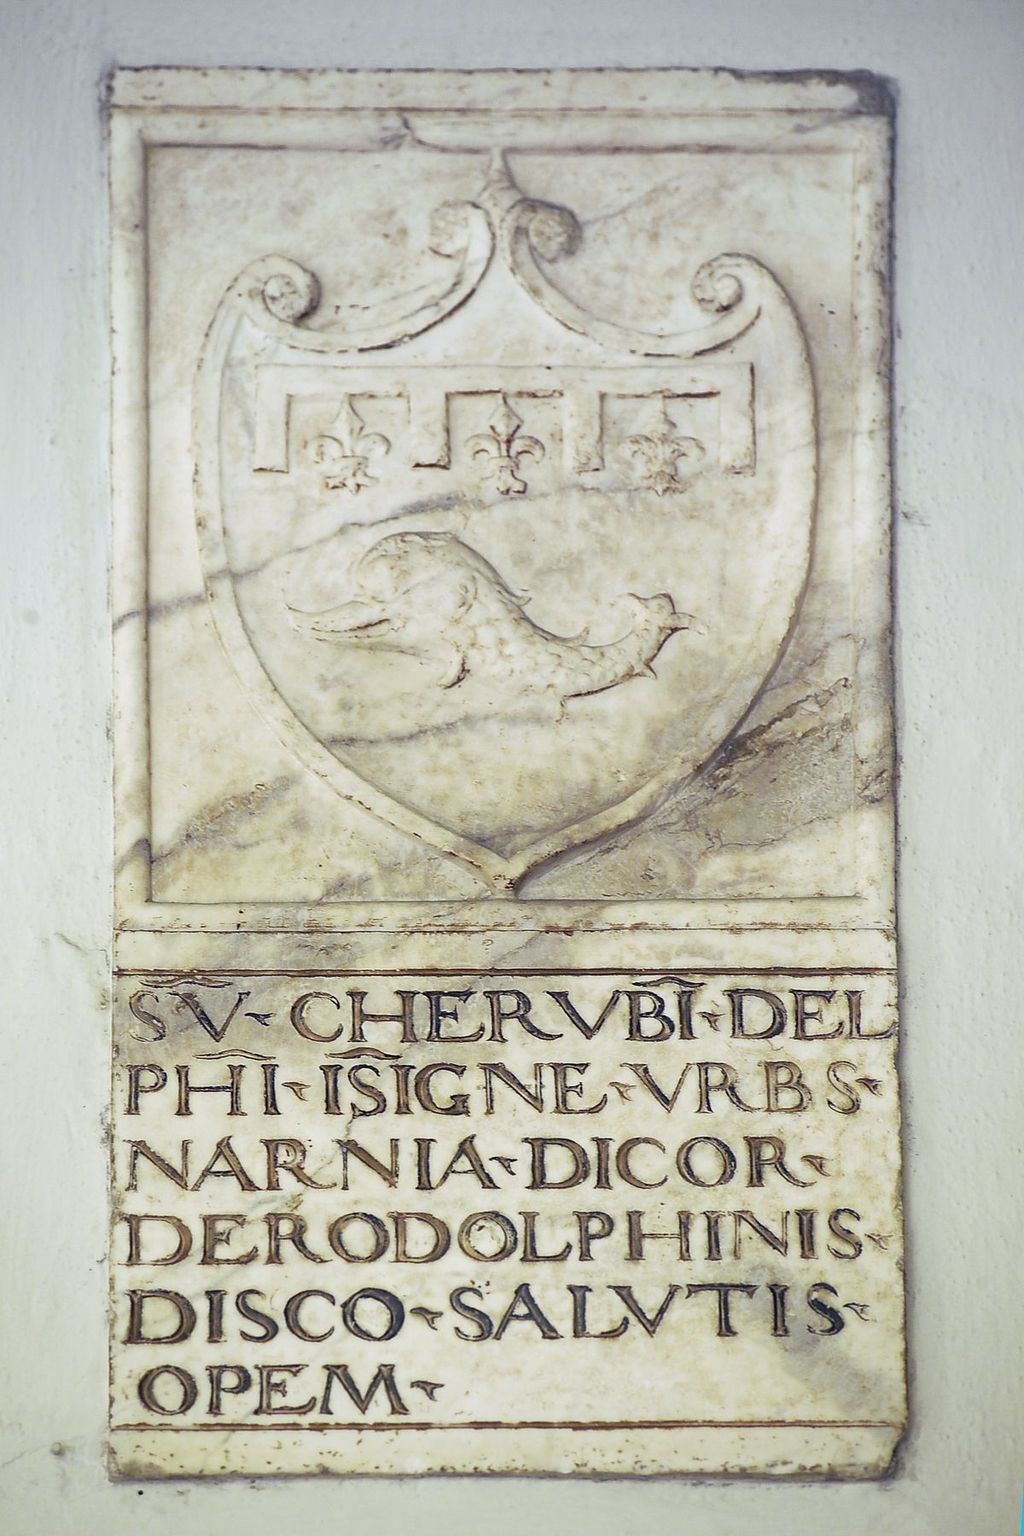 SV̄ · CHERVBĪ · DEL
PHĪ · ĪSIGNE · VRBS ·
NARNIA · DICOR ·
DERODOLPHINIS ·
DISCO · SALVTIS ·
OPEM ·